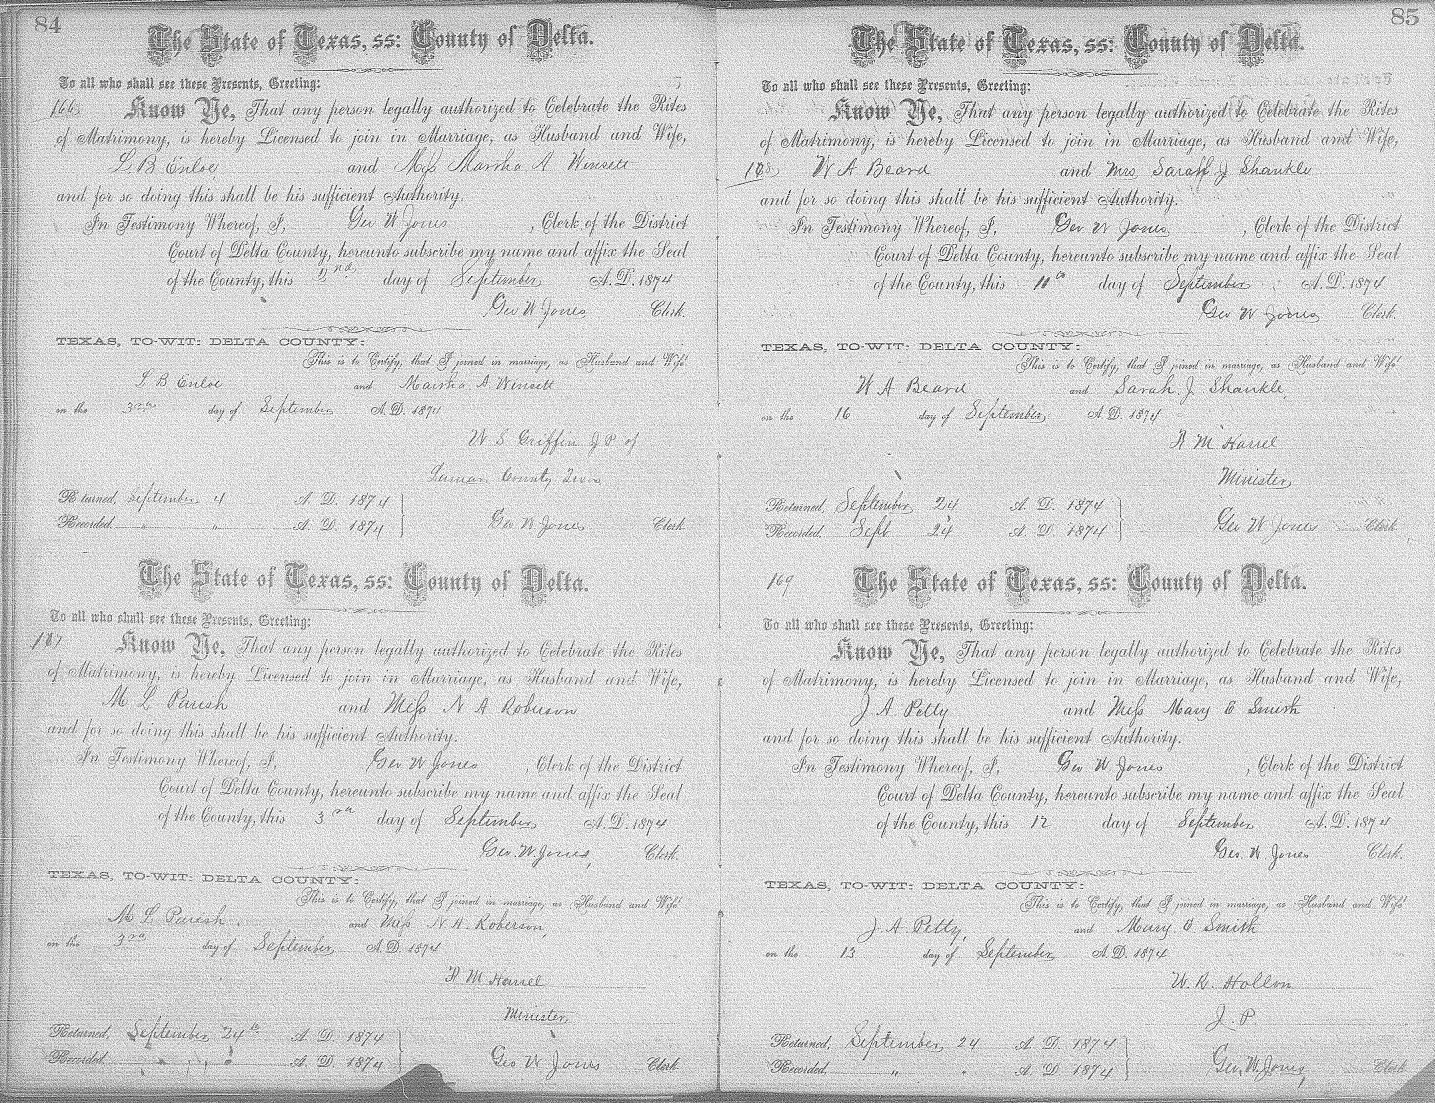 84
The State of Texas, ss: County of Delta.
To all who shall see these Presents, Greeting:
166 Know Ye, That any person legally authorized to Celebrate the Rites
of Matrimony, is hereby Licensed to join in Marriage, as Husband and Wife,
L B Enloe and Miss Martha A Winsett
and for so doing this shall be his sufficient Authority.
In Testimony Whereof, I, Geo W Jones, Clerk of the District
Court of Delta County, hereunto subscribe my name and affix the Seal
of the County, this 2nd day of September A.D. 1874
Geo W Jones Clerk.
TEXAS, TO-WIT: DELTA COUNTY:
This is to Certify, that I joined in marriage, as Husband and Wife
L B Enloe and Martha A Winsett
on the 3rd day of September A.D. 1874
W S Griffin J P of
County Texas
Returned, September 4 A. D. 1874
Recorded " " A. D. 1874 Geo W Jones Clerk
The State of Texas, ss: County of Delta.
To all who shall see these Presents, Greeting:
167 Know Ye, That any person legally authorized to Celebrate the Rites
of Matrimony, is hereby Licensed to join in Marriage, as Husband and Wife,
M L Parish and Miss N A Roberson
and for so doing this shall be his sufficient Authority.
In Testimony Whereof, I, Geo W Jones, Clerk of the District
Court of Delta County, hereunto subscribe my name and affix the Seal
of the County, this 3rd day of September A.D. 1874
Geo. W. Jones, Clerk.
TEXAS, TO-WIT: DELTA COUNTY:
This is to Certify, that I joined in marriage, as Husband and Wife
M L Parish and Miss N A Roberson,
on the 3rd day of September A.D. 1874
R M Harrel
Minister
Returned, September 24th A. D. 1874
Recorded " " A. D. 1874 Geo W Jones Clerk
85
The State of Texas, ss: County of Delta.
To all who shall see these Presents, Greeting:
Know Ye, That any person legally authorized to Celebrate the Rites
of Matrimony, is hereby Licensed to join in Marriage, as Husband and Wife,
168 W A Beard and Mrs Sarah J Shankle
and for so doing this shall be his sufficient Authority.
In Testimony Whereof, I, Geo W Jones, Clerk of the District
Court of Delta County, hereunto subscribe my name and affix the Seal
of the County, this 11th day of September A.D. 1874
Geo W Jones Clerk.
TEXAS, TO-WIT: DELTA COUNTY:
This is to Certify, that I joined in marriage, as Husband and Wife
W A Beard and Sarah J. Shankle,
on the 16 day of September, A.D. 1874
R M Harrel
Minister
Returned, September 24 A. D. 1874
Recorded, Sept 24 A. D. 1874 Geo W Jones Clerk
169 The State of Texas, ss: County of Delta.
To all who shall see these Presents, Greeting:
Know Ye, That any person legally authorized to Celebrate the Rites
of Matrimony, is hereby Licensed to join in Marriage, as Husband and Wife,
J A Petty and Miss Mary E Smith
and for so doing this shall be his sufficient Authority.
In Testimony Whereof, I, Geo W Jones, Clerk of the District
Court of Delta County, hereunto subscribe my name and affix the Seal
of the County, this 12 day of September A.D. 1874
Geo. W Jones Clerk.
TEXAS, TO-WIT: DELTA COUNTY:
This is to Certify, that I joined in marriage, as Husband and Wife
J A Petty, and Mary E Smith
on the 13 day of September A.D. 1874
W. R. Hollon
J P
Returned, September 24 A. D. 1874
Recorded " " A. D 1874 Geo, W. Jones, Clerk